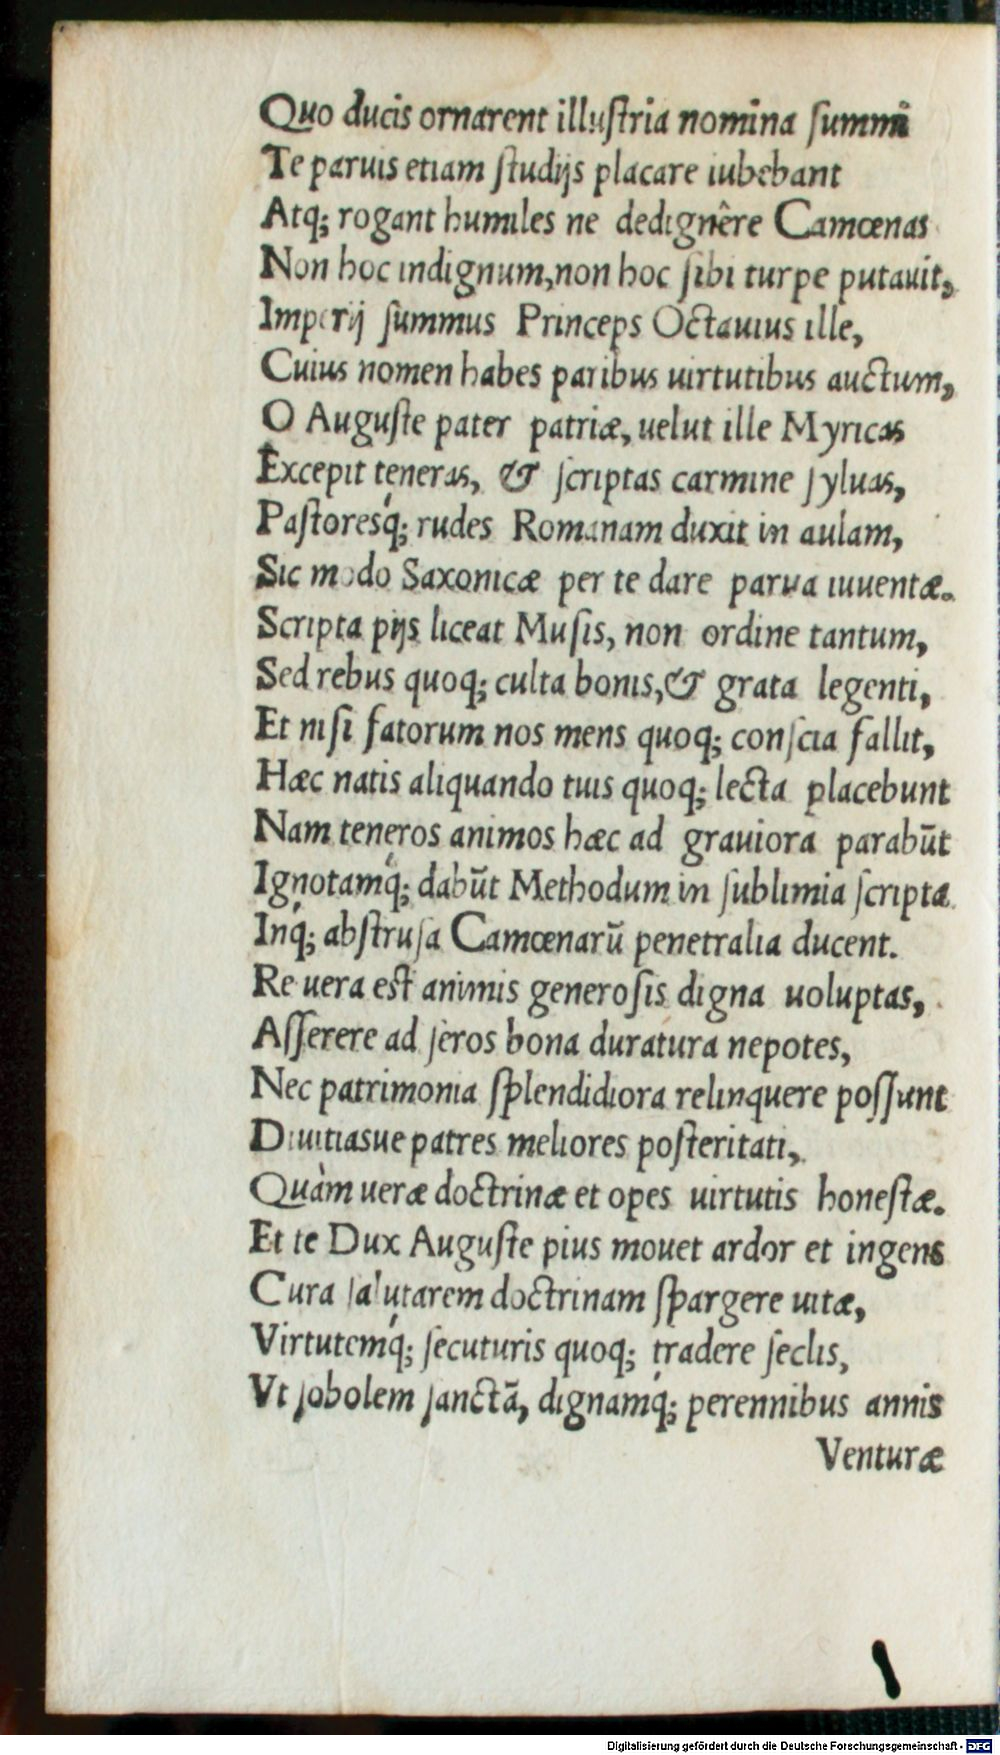 Quo ducis ornarent illuſtria nomina ſummi
Te paruis etiam ſtudijs placare iubebant
Atq; rogant humiles ne dedignêre Camœnas
Non hoc indignum, non hoc ſibi turpe putauit,
Imperij ſummus Princeps Octauius ille,
Cuius nomen habes paribus uirtutibus auctum,
O Auguſte pater patriæ, uelut ille Myricas
Excepit teneras, & ſcriptas carmine ſyluas,
Paſtoresq́; rudes Romanam duxit in aulam,
Sic modo Saxonicæ per te dare parua iuuentæ.
Scripta pijs liceat Muſis, non ordine tantum,
Sed rebus quoq; culta bonis, & grata legenti,
Et niſi fatorum nos mens quoq; conſcia fallit,
Hæc natis aliquando tuis quoq; lecta placebunt
Nam teneros animos hæc ad grauiora parabūt
Ignotamq́; dabūt Methodum in ſublimia ſcripta
Inq́; abſtruſa Camœnarū penetralia ducent.
Re uera eſt animis generoſis digna uoluptas,
Aſſerere ad ſeros bona duratura nepotes,
Nec patrimonia ſplendidiora relinquere poſſunt
Diuitiasue patres meliores poſteritati,
Quàm ueræ doctrinæ et opes uirtutis honeſtæ.
Et te Dux Auguſte pius mouet ardor et ingens
Cura ſalutarem doctrinam ſpargere uitæ,
Virtutemq́; ſecuturis quoq; tradere ſeclis,
Vt ſobolem ſanctā, dignamq́; perennibus annis
Venturæ
Digitalisierung gefördert durch die Deutsche Forschungsgemeinschaft - DFG